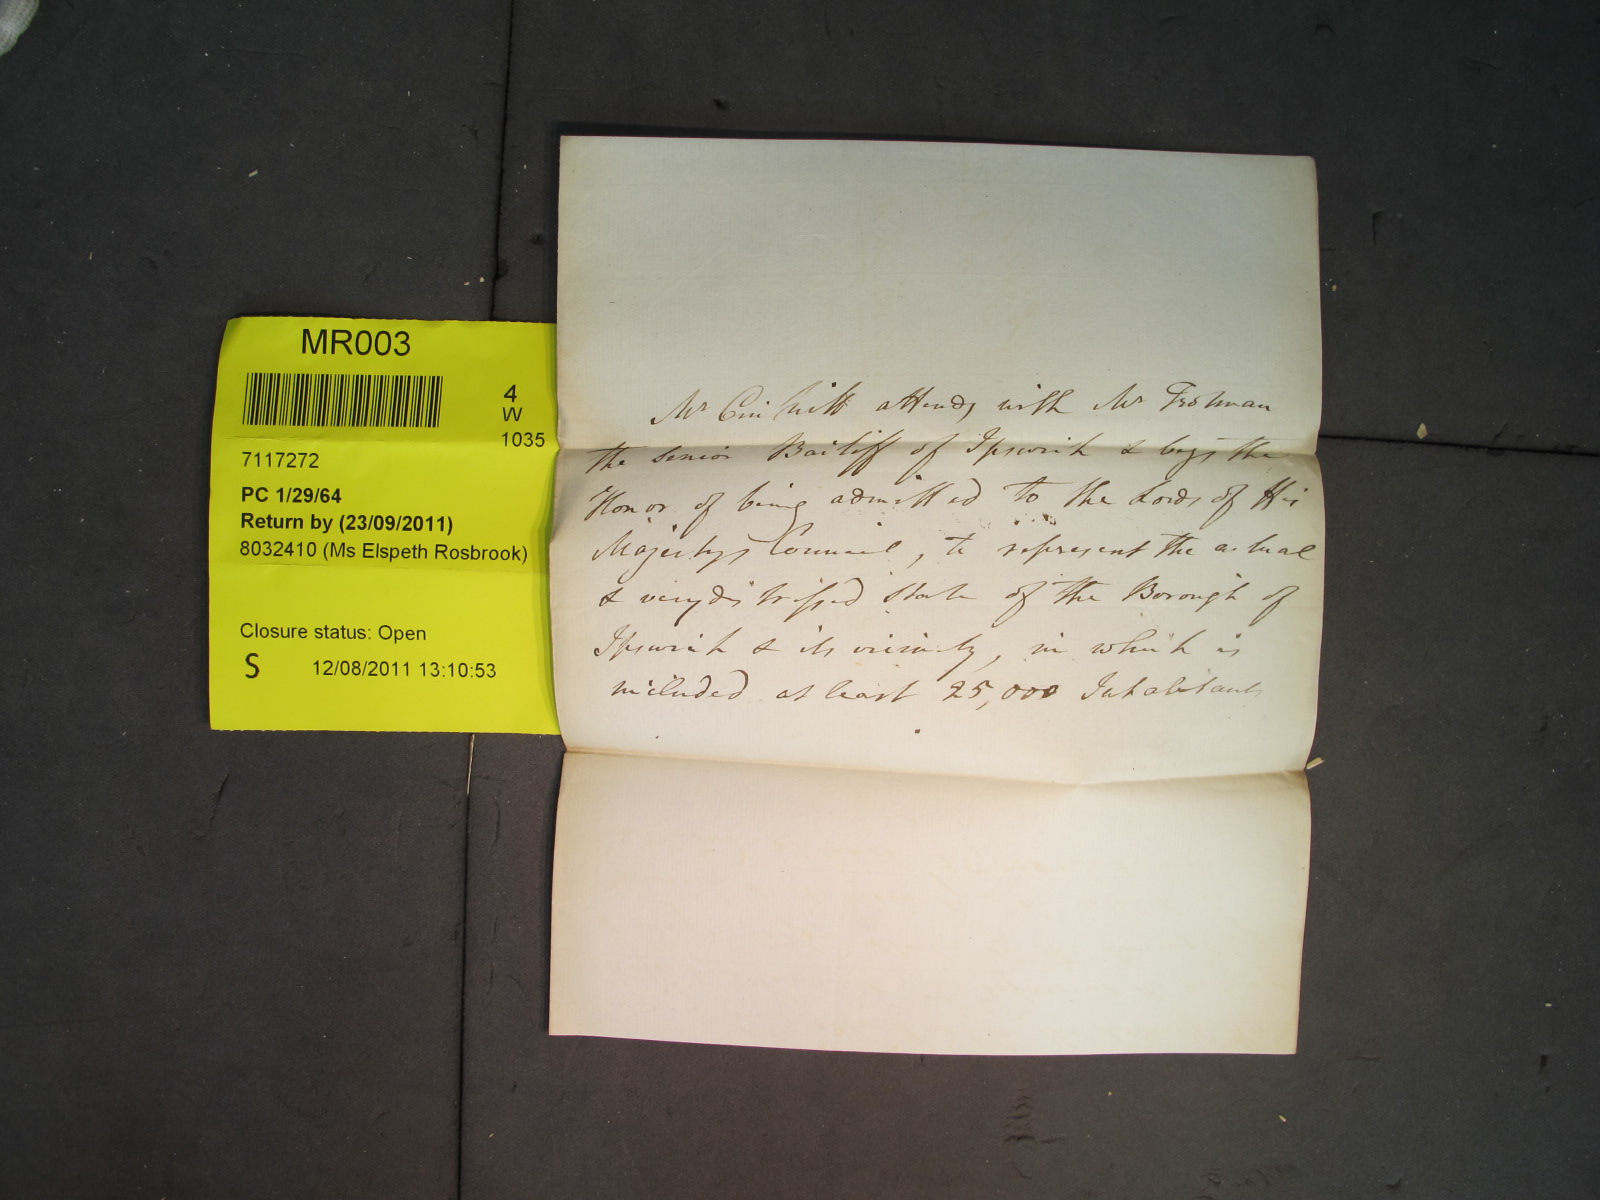 MR003
4
W
1035
7117272
PC 1/29/64
Return by (23/09/2011)
8032410 (Ms Elspeth Rosbrook)
Closure status: Open
S 12/08/2011 13:10:53
Mr attends with Mr Trotman
the senior Bailiff of Ipswich & begs the
Honor of being admitted to the Lords of His
Majestys Council, to represent the actual
& very distressed state of the Borough of
Ipswich & its vicinity, in which is
included at least 25,000 Inhabitants